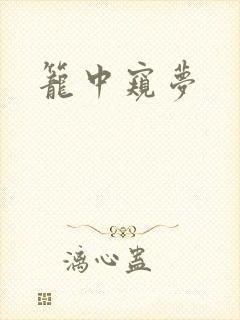 籠中窺夢
漓心蛊